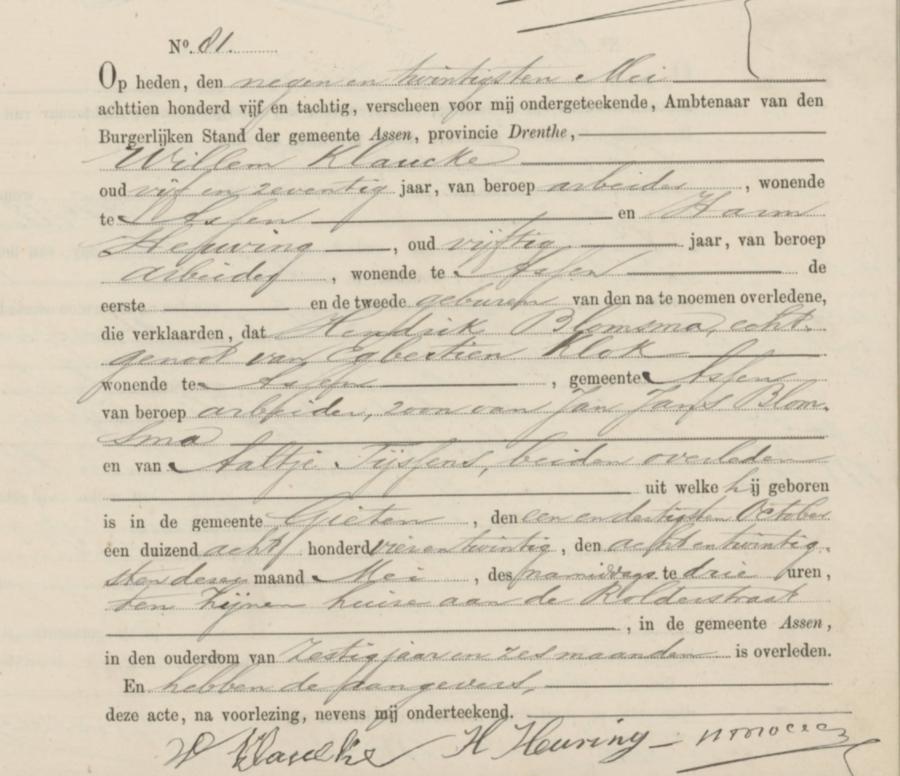 No. 81.
Op heden, den negen en twintigsten Mei
achttien honderd vijf en tachtig, verscheen voor mij ondergeteekende, Ambtenaar van den
Burgerlijken Stand der gemeente Assen, provincie Drenthe,
Willem Klaucke
oud vijf en zeventig jaar, van beroep arbeider, wonende
te Assen en Harm
Heuving, oud vijftig jaar, van beroep
arbeider, wonende te Assen de
eerste en de tweede geburen van den na te noemen overledene,
die verklaarden, dat Hendrik Blomsma, echt-
genoot van Egbertien Klok
wonende te Assen, gemeente Assen
van beroep arbeider, zoon van Jan Jans Blom-
sma
en van Aaltje Tijssens, beiden overleden
uit welke hij geboren
is in de gemeente Gieten, den een en dertigsten October
een duizend acht honderd vier en twintig, den acht en twintig-
sten dezer maand Mei, des namiddags te drie uren,
ten zijnen huize aan de Rolderstraat
, in de gemeente Assen,
in den ouderdom van zestig jaar en zes maanden is overleden.
En hebben de aangevers,
deze acte, na voorlezing, nevens mij onderteekend.
W Klaucke H Heuving